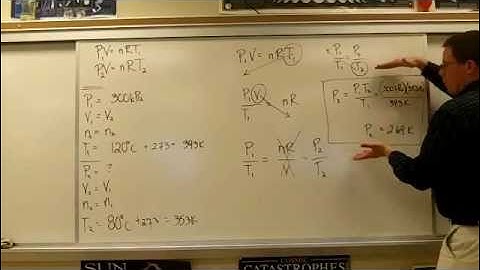 P₁V = nRT₁
P₂V = nRT₂
P₁ = 300kPa
V₁ = V₂
n₁ = n₂
T₁ = 120°C + 273 = 393K
P₂ = ?
V₂ = V₁
n₂ = n₁
T₂ = 80°C + 273 = 353K
P₁V = nRT₁
P₁V
T₁
nR
P₁ = nR = P₂
T₁ V T₂
P₁ P₂
T₁ T₂
P₂ = P₁T₂
T₁
393K
P₂ = 269K
SUN
COSMIC
CATASTROPHES